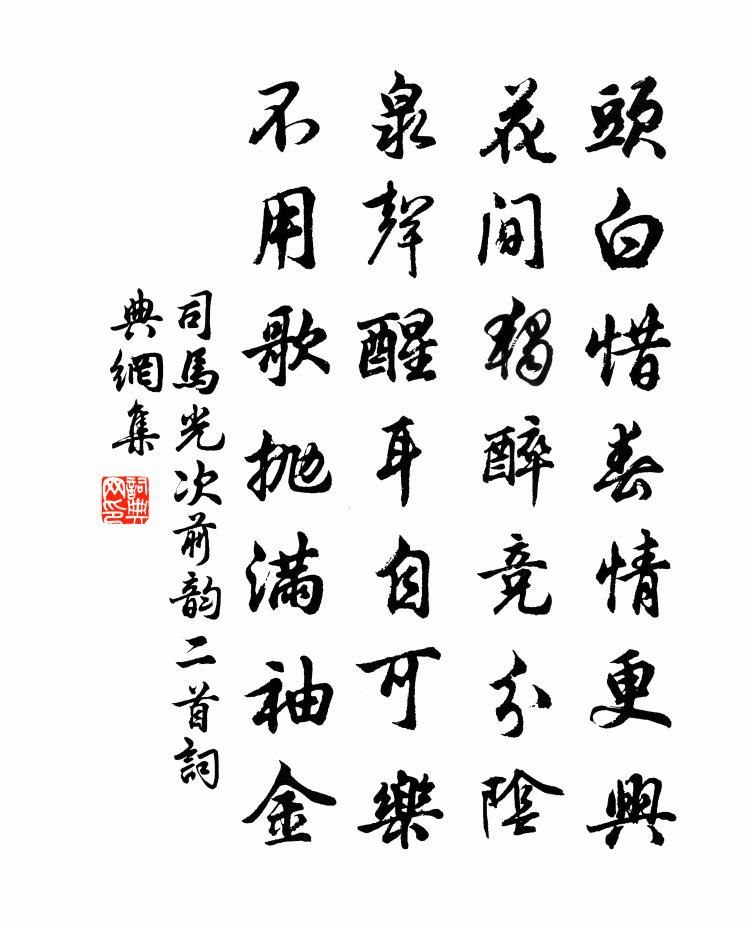 頭白惜春情更興
花間獨醉竞分陰
泉聲醒耳自可樂
不用歌抛满袖金
司馬光次前韵二首詞
典網集
詞典
网印